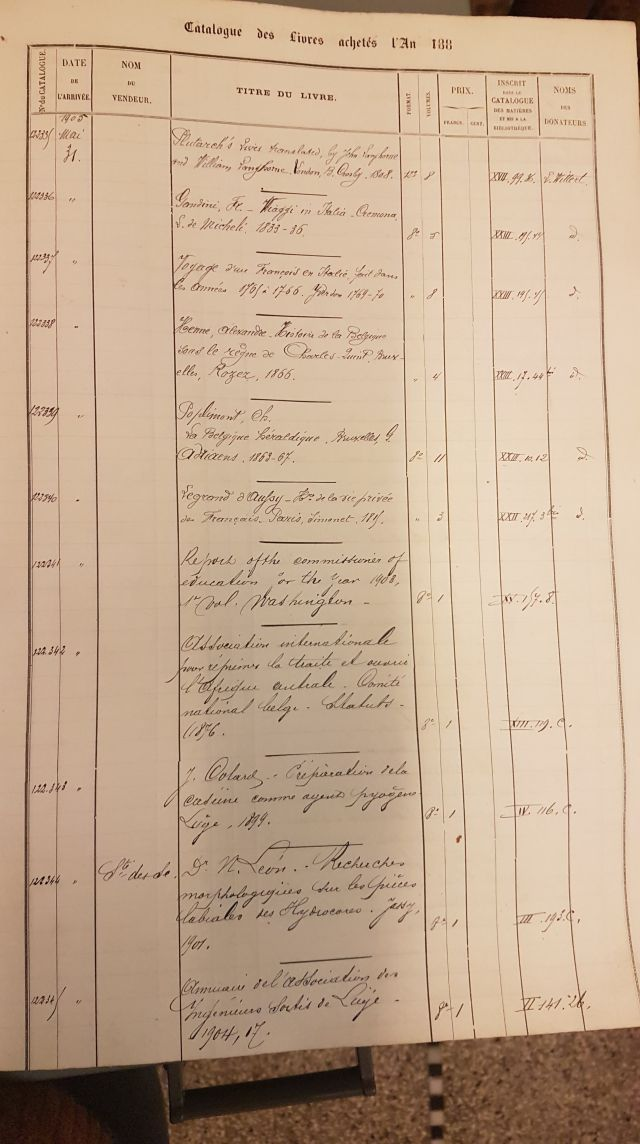 Catalogue des Livres achetés l'An 188
N° DU CATALOGUE.
DATE DE L'ARRIVÉE.
NOM DU VENDEUR.
TITRE DU LIVRE.
FORMAT.
VOLUMES.
PRIX.
FRANCS. CENT.
INSCRIT DANS LE CATALOGUE DES MATIÈRES ET MIS A LA BIBLIOTHÈQUE.
NOMS DES DONATEURS.
1905
12233 Mai
31. Plutarch's Lives translated, by John Langhorne
and William Langhorne. London, B. Crosby. 1808. 12° 8 XVII. 99. E. Wittert.
122336 " Gandini, Fr. - Viaggi in Italia - Cremona,
L. de Micheli. 1833-36. 8° 5 XXIII. d.
12233 " Voyage d'un François en Italie, fait dans
les années 1765 à 1766. Yverdon 1769-70 " 8 XXIII. d.
122338 " Henne, Alexandre - Histoire de la Belgique
sous le règne de Charles-Quint, Brux-
elles, Rozez, 1866. " 4 XXIII. 17. 44 d.
122339 " Poplimont, Ch.
La Belgique héraldique. Bruxelles, G.
Adriaens. 1863-67. 8° 11 XXIII. 10. 12 d.
122340 " Legrand d'Aussy - H^re de la vie privée
des Français. Paris, Simonet, 1815. " 3 XXII. d.
122341 " Report of the commissioner of
education for the year 1903,
1^er vol. Washington - 8° 1 XV. 157. 8.
122.342 " Association internationale
pour réprimer la traite et ouvrir
l'Afrique centrale. Comité
national belge. Statuts -
1876. 8° 1 XIII. 119. C.
122.343 " J. - Préparation de la
caséine comme agent pyogène
Liège, 1899. 8° 1 IV. 116. C.
122344 " S^té des Sc. D^r N. Léon. - Recherches
morphologiques sur les pièces
labiales des Hydrocores. Jassy,
1901. 8° 1 III. 193. C.
12234 " Annuaire de l'association des
Ingénieurs sortis de Liège -
1904, 17. 8° 1 II. 141. 26.